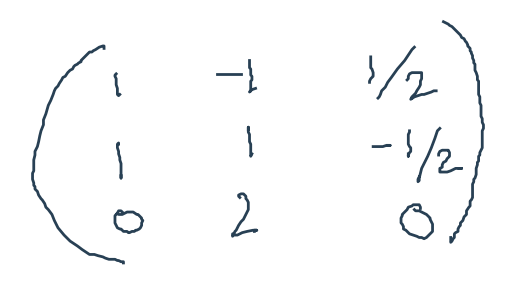 1 -1 1/2
1 1 -1/2
0 2 0